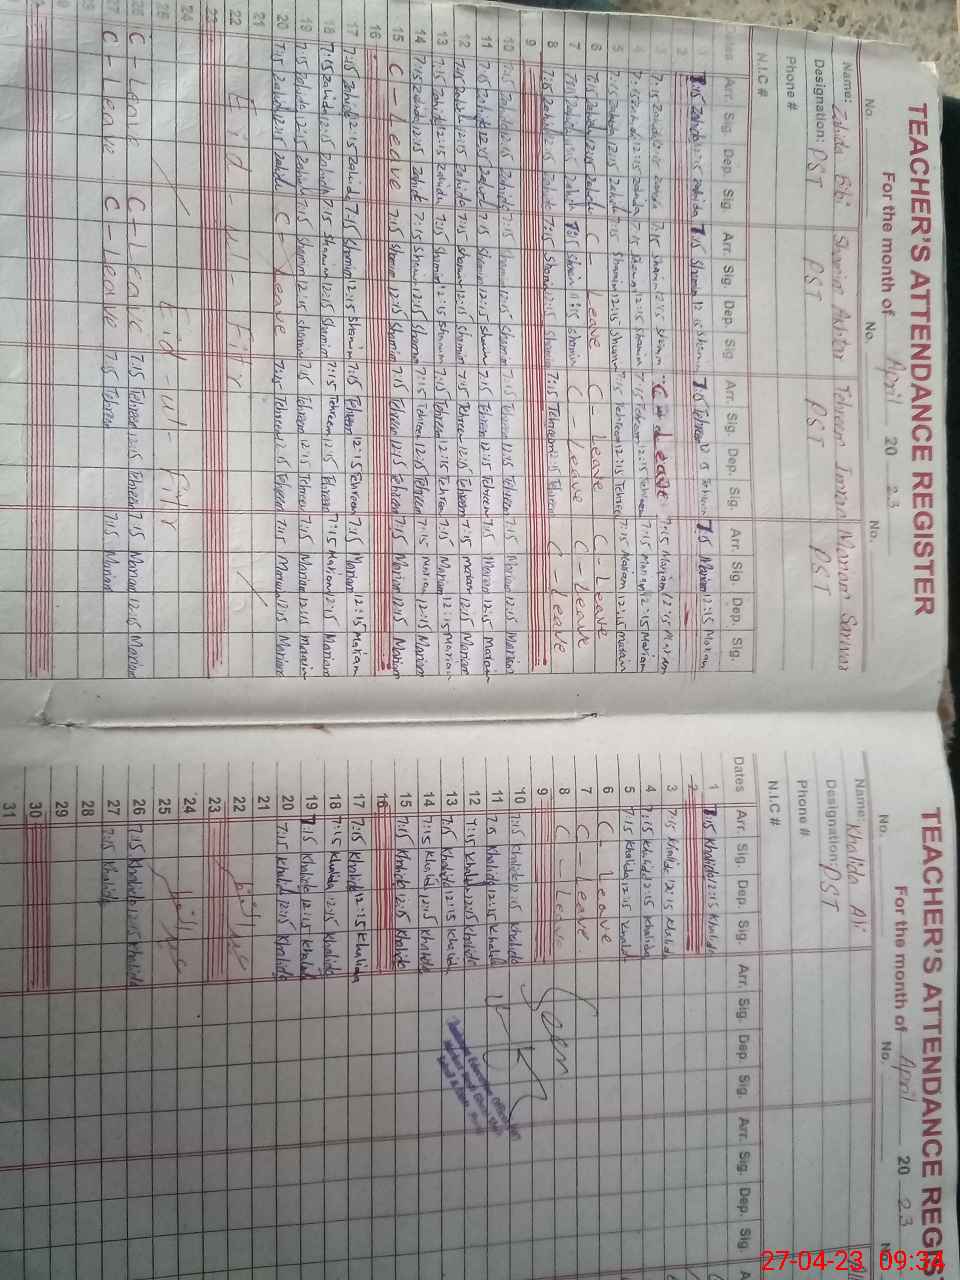 TEACHER'S ATTENDANCE REGISTER
For the month of April 20 23
No. No. No.
Name: Zahida Bibi Shamim Akhter Tehreem Imtiaz Mariam Sarwar
Designation: PST PST PST PST
Phone #
N.I.C #
Dates Arr. Sig. Dep. Sig. Arr. Sig. Dep. Sig. Arr. Sig. Dep. Sig. Arr. Sig. Dep. Sig.
1 7:15 Zahida 12:15 Zahida 7:15 Shamim 12:15 Shamim 7:15 Tehreem 12:15 Tehreem 7:15 Mariam 12:15 Mariam
2
3 7:15 Zahida 12:15 Zahida 7:15 Shamim 12:15 Shamim C - Leave 7:15 Mariam 12:15 Mariam
4 7:15 Zahida 12:15 Zahida 7:15 Shamim 12:15 Shamim 7:15 Tehreem 12:15 Tehreem 7:15 Mariam 12:15 Mariam
5 7:15 Zahida 12:15 Zahida 7:15 Shamim 12:15 Shamim 7:15 Tehreem 12:15 Tehreem 7:15 Mariam 12:15 Mariam
6 7:15 Zahida 12:15 Zahida C - Leave C - Leave C - Leave
7 7:15 Zahida 12:15 Zahida 7:15 Shamim 11:15 Shamim C - Leave C - Leave
8 7:15 Zahida 12:15 Zahida 7:15 Shamim 12:15 Shamim 7:15 Tehreem 12:15 Tehreem C - Leave
9
10 7:15 Zahida 12:15 Zahida 7:15 Shamim 12:15 Shamim 7:15 Tehreem 12:15 Tehreem 7:15 Mariam 12:15 Mariam
11 7:15 Zahida 12:15 Zahida 7:15 Shamim 12:15 Shamim 7:15 Tehreem 12:15 Tehreem 7:15 Mariam 12:15 Mariam
12 7:15 Zahida 12:15 Zahida 7:15 Shamim 12:15 Shamim 7:15 Tehreem 12:15 Tehreem 7:15 Mariam 12:15 Mariam
13 7:15 Zahida 12:15 Zahida 7:15 Shamim 12:15 Shamim 7:15 Tehreem 12:15 Tehreem 7:15 Mariam 12:15 Mariam
14 7:15 Zahida 12:15 Zahida 7:15 Shamim 12:15 Shamim 7:15 Tehreem 12:15 Tehreem 7:15 Mariam 12:15 Mariam
15 C - Leave 7:15 Shamim 12:15 Shamim 7:15 Tehreem 12:15 Tehreem 7:15 Mariam 12:15 Mariam
16
17 7:15 Zahida 12:15 Zahida 7:15 Shamim 12:15 Shamim 7:15 Tehreem 12:15 Tehreem 7:15 Mariam 12:15 Mariam
18 7:15 Zahida 12:15 Zahida 7:15 Shamim 12:15 Shamim 7:15 Tehreem 12:15 Tehreem 7:15 Mariam 12:15 Mariam
19 7:15 Zahida 12:15 Zahida 7:15 Shamim 12:15 Shamim 7:15 Tehreem 12:15 Tehreem 7:15 Mariam 12:15 Mariam
20 7:15 Zahida 12:15 Zahida C - Leave 7:15 Tehreem 12:15 Tehreem 7:15 Mariam 12:15 Mariam
21
22 Eid - ul - Fitr
23
24 Eid - ul - Fitr
25
26 C - Leave C - Leave 7:15 Tehreem 12:15 Tehreem 7:15 Mariam 12:15 Mariam
27 C - Leave C - Leave 7:15 Tehreem 7:15 Mariam
28
TEACHER'S ATTENDANCE REGIS
For the month of April 20 23
No. No. No.
Name: Khalida Ali
Designation: PST
Phone #
N.I.C #
Dates Arr. Sig. Dep. Sig. Arr. Sig. Dep. Sig. Arr. Sig. Dep. Sig. A
1 7:15 Khalida 12:15 Khalida
2
3 7:15 Khalida 12:15 Khalida
4 7:15 Khalida 12:15 Khalida
5 7:15 Khalida 12:15 Khalida
6 C - Leave
7 C - Leave
8 C - Leave
9
10 7:15 Khalida 12:15 Khalida
11 7:15 Khalida 12:15 Khalida
12 7:15 Khalida 12:15 Khalida
13 7:15 Khalida 12:15 Khalida
14 7:15 Khalida 12:15 Khalida
15 7:15 Khalida 12:15 Khalida
16
17 7:15 Khalida 12:15 Khalida
18 7:15 Khalida 12:15 Khalida
19 7:15 Khalida 12:15 Khalida
20 7:15 Khalida 12:15 Khalida
21
22
23
24
25
26 7:15 Khalida 12:15 Khalida
27 7:15 Khalida
28
29
30
31
27-04-23 09:34